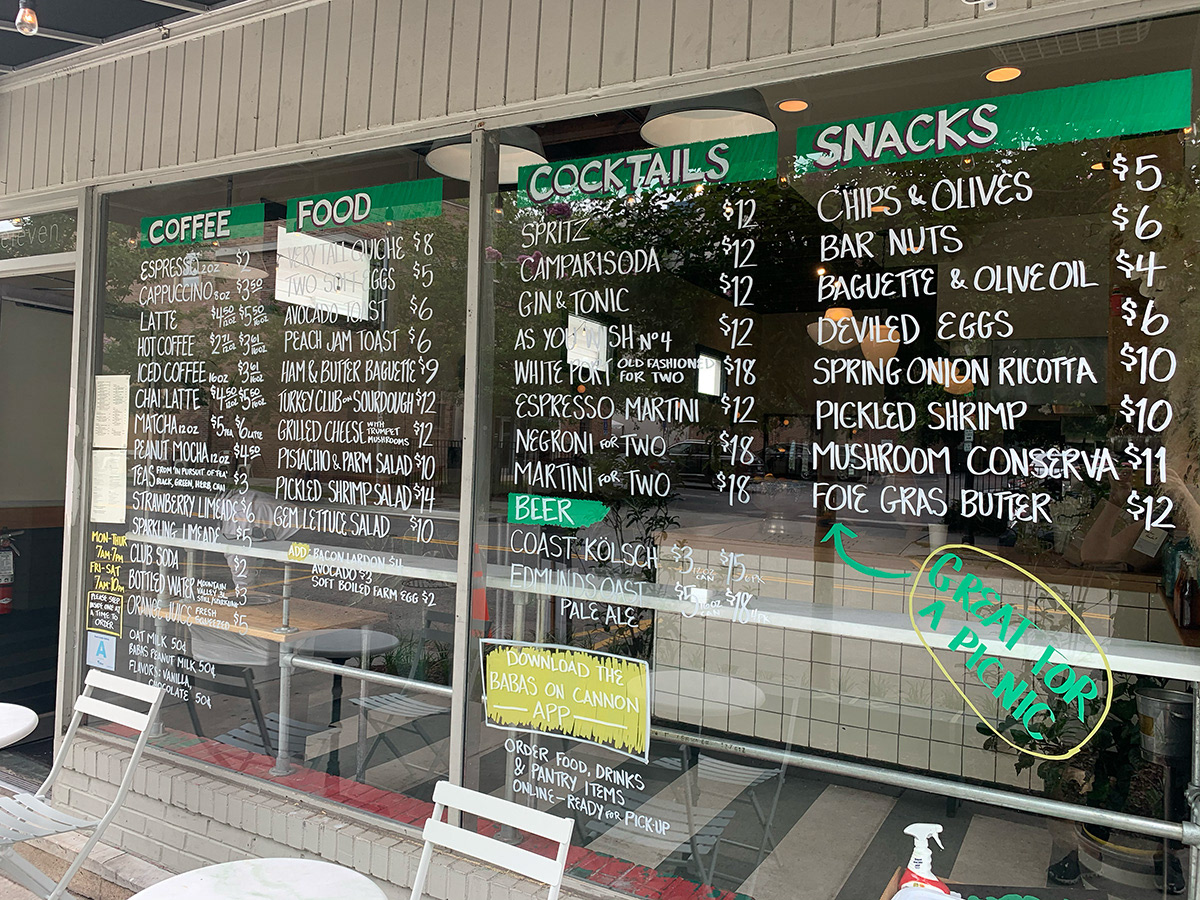 eleven
COFFEE
ESPRESSO 2OZ $2
CAPPUCCINO 8OZ $3.50
LATTE $4.50 12OZ $5.50 16OZ
HOT COFFEE 12OZ $3.61 16OZ
ICED COFFEE 16OZ $3.61 16OZ
CHAI LATTE $4.50 12OZ $5.50 16OZ
MATCHA 12OZ $5 TEA $6 LATTE
PEANUT MOCHA 12OZ $4.50
TEAS FROM "IN PURSUIT OF TEA" BLACK, GREEN, HERB, CHAI $3
STRAWBERRY LIMEADE $6
SPARKLING LIMEADE $5
CLUB SODA $2
BOTTLED WATER MOUNTAIN VALLEY STILL/SPARKLING $3
ORANGE JUICE FRESH SQUEEZED $5
OAT MILK 50¢
BABAS PEANUT MILK 50¢
FLAVORS: VANILLA,
CHOCOLATE 50¢
MON-THUR
7AM-7PM
FRI-SAT
7AM-10PM
PLEASE STEP
INSIDE ONE AT
A TIME TO
ORDER
A
FOOD
VERY TALL QUICHE $8
TWO SOFT EGGS $5
AVOCADO TOAST $6
PEACH JAM TOAST $6
HAM & BUTTER BAGUETTE $9
TURKEY CLUB ON SOURDOUGH $12
GRILLED CHEESE WITH TRUMPET MUSHROOMS $12
PISTACHIO & PARM SALAD $10
PICKLED SHRIMP SALAD $14
GEM LETTUCE SALAD $10
ADD: BACON LARDON $4
AVOCADO $3
SOFT BOILED FARM EGG $2
COCKTAILS
SPRITZ $12
CAMPARI SODA $12
GIN & TONIC $12
AS YOU WISH Nº4 $12
WHITE PORT OLD FASHIONED FOR TWO $18
ESPRESSO MARTINI $12
NEGRONI FOR TWO $18
MARTINI FOR TWO $18
BEER
COAST KÖLSCH $3 CAN $15 6PK
EDMUNDS OAST
PALE ALE $5 16OZ CAN $18 4PK
DOWNLOAD THE
BABAS ON CANNON
APP
ORDER FOOD, DRINKS
& PANTRY ITEMS
ONLINE - READY FOR PICK-UP
SNACKS
CHIPS & OLIVES $5
BAR NUTS $6
BAGUETTE & OLIVE OIL $4
DEVILED EGGS $6
SPRING ONION RICOTTA $10
PICKLED SHRIMP $10
MUSHROOM CONSERVA $11
FOIE GRAS BUTTER $12
GREAT FOR
A PICNIC